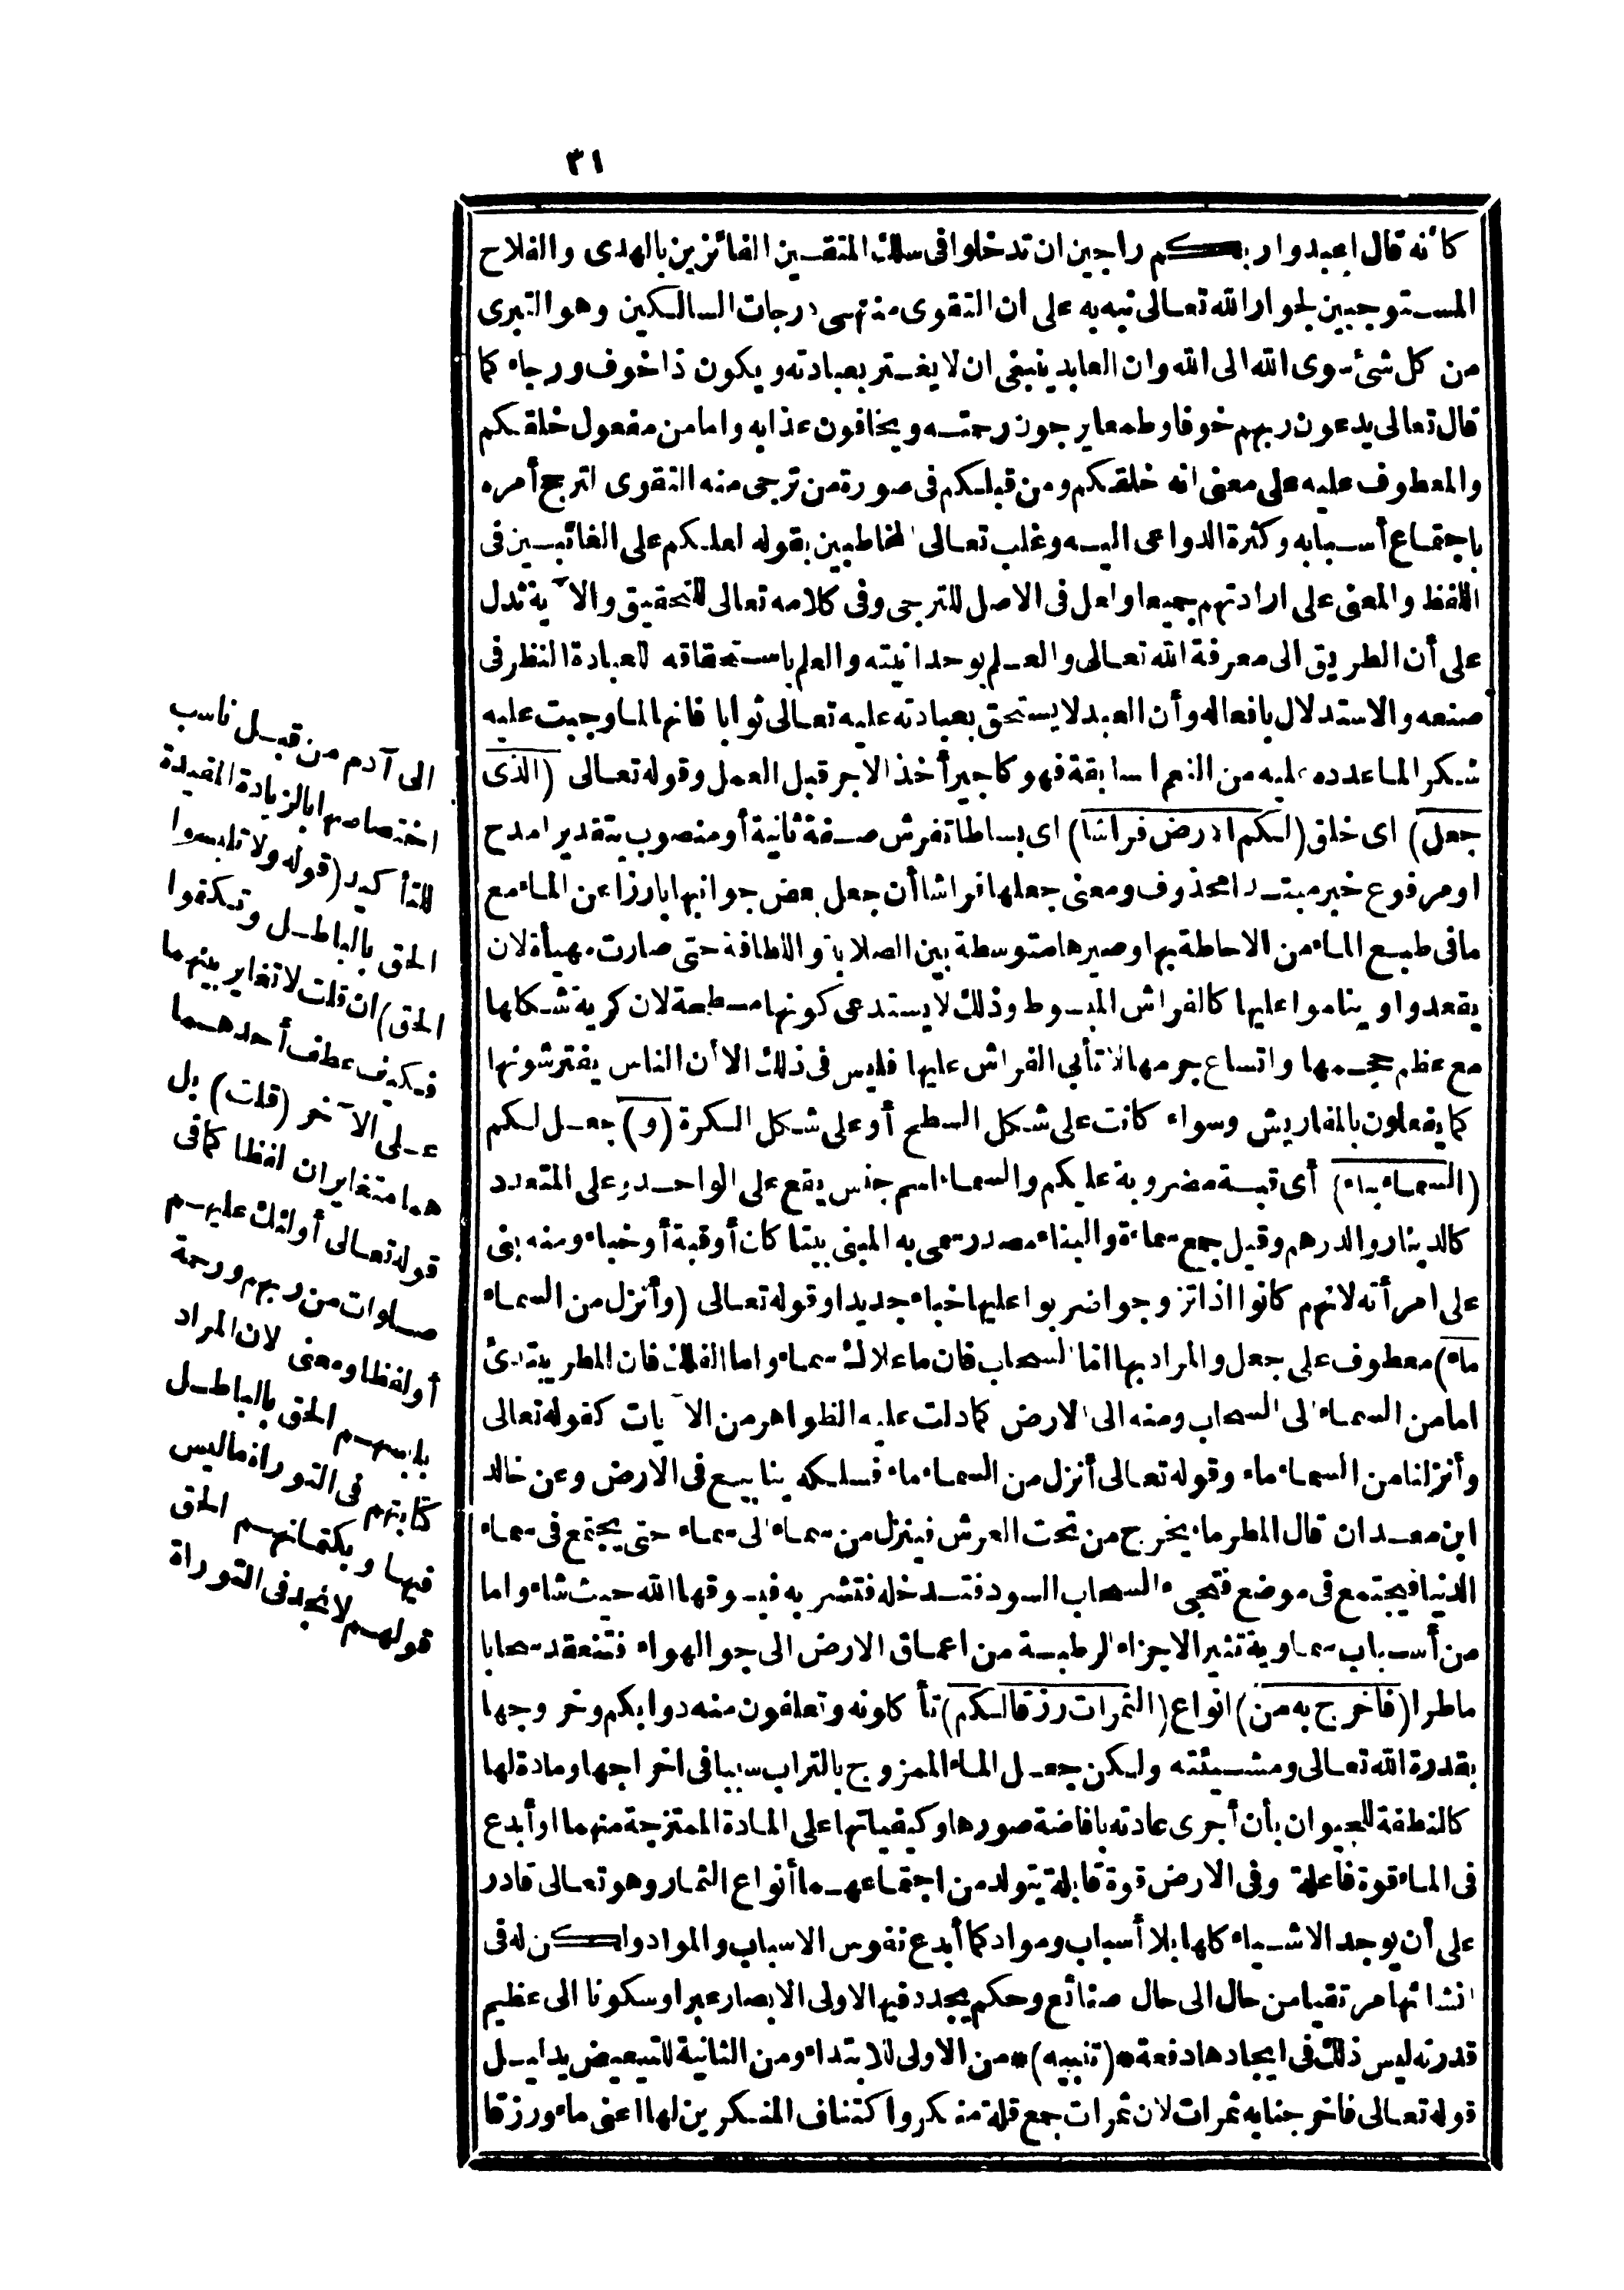 ٣١
كأنه قال اعبدوا ربكم راجين ان تدخلوا فى سلك المتقين الفائزين بالهدى والفلاح
المستوجبين لجوار الله تعالى نبه به على ان التقوى منتهى درجات السالكين وهو التبرى
من كل شئ سوى الله الى الله وان العابد ينبغى ان لا يغتر بعبادته ويكون ذا خوف ورجاء كما
قال تعالى يدعون ربهم خوفا وطمعا يرجون رحمته ويخافون عذابه واما من مفعول خلقكم
والمعطوف عليه على معنى انه خلقكم ومن قبلكم فى صورة من ترجى منه التقوى لترجح أمره
باجتماع أسبابه وكثرة الدواعى اليه وغلب تعالى المخاطبين بقوله لعلكم على الغائبين فى
اللفظ والمعنى على ارادتهم جميعا ولعل فى الاصل للترجى وفى كلامه تعالى للتحقيق والآية تدل
على أن الطريق الى معرفة الله تعالى والعلم بوحدانيته والعلم باستحقاقه للعبادة النظر فى
صنعه والاستدلال بافعاله وأن العبد لا يستحق بعبادته عليه تعالى ثوابا فانها لما وجبت عليه
شكرا لما عدده عليه من النعم السابقة فهو كاجير أخذ الاجر قبل العمل وقوله تعالى (الذى
جعل) اى خلق (لكم الارض فراشا) اى بساطا تفرش صفة ثانية أو منصوب بتقدير امدح
او مرفوع خبر مبتدا محذوف ومعنى جعلها فراشا أن جعل بعض جوانبها بارزا عن الماء مع
ما فى طبع الماء من الاحاطة بها وصيرها متوسطة بين الصلابة واللطافة حتى صارت مهيأة لان
يقعدوا ويناموا عليها كالفراش المبسوط وذلك لا يستدعى كونها مسطحة لان كرية شكلها
مع عظم حجمها واتساع جرمها لا تأبى الفراش عليها فليس فى ذلك الا أن الناس يفترشونها
كما يفعلون بالمفاريش وسواء كانت على شكل السطح أو على شكل الكرة (و) جعل لكم
(السماء بناء) أى قبة مضروبة عليكم والسماء اسم جنس يقع على الواحد وعلى المتعدد
كالدينار والدرهم وقيل جمع سماءة والبناء مصدر سمى به المبنى بيتا كان أو قبة أو خباء ومنه بنى
على امرأته لانهم كانوا اذا تزوجوا ضربوا عليها خباء جديدا وقوله تعالى (وأنزل من السماء
ماء) معطوف على جعل والمراد بها اما السحاب فان ما علاك سماء واما الفلك فان المطر يبتدئ
اما من السماء الى السحاب ومنه الى الارض كما دلت عليه الظواهر من الآيات كقوله تعالى
وأنزلنا من السماء ماء وقوله تعالى أنزل من السماء ماء فسلكه ينابيع فى الارض وعن خالد
ابن معدان قال المطر ماء يخرج من تحت العرش فينزل من سماء الى سماء حتى يجتمع فى سماء
الدنيا فيجتمع فى موضع فتجىء السحاب السود فتدخله فتشربه فيسوقها الله حيث شاء واما
من أسباب سماوية تثير الاجزاء الرطبة من اعماق الارض الى جو الهواء فتنعقد سحابا
ماطرا (فاخرج به من) انواع (الثمرات رزقا لكم) تأكلونه وتعلفون منه دوابكم وخروجها
بقدرة الله تعالى ومشيئته ولكن جعل الماء الممزوج بالتراب سببا فى اخراجها ومادة لها
كالنطفة للحيوان بأن أجرى عادته بافاضة صورها وكيفياتها على المادة الممتزجة منهما او أبدع
فى الماء قوة فاعلة وفى الارض قوة قابلة يتولد من اجتماعهما أنواع الثمار وهو تعالى قادر
على أن يوجد الاشياء كلها بلا أسباب ومواد كما أبدع نفوس الاسباب والمواد ولكن له فى
انشائها مرتقيا من حال الى حال صنائع وحكم يجدد فيها لاولى الابصار عبرا وسكونا الى عظيم
قدرته ليس ذلك فى ايجادها دفعة *(تنبيه)* من الاولى للابتداء ومن الثانية للتبعيض بدليل
قوله تعالى فاخرجنا به ثمرات لان ثمرات جمع قلة منكر واكتناف المنكرين لها اعنى ماء ورزقا
الى آدم من قبل ناسب
اختصاصها بالزيادة المفيدة
للتأكيد (قوله ولا تلبسوا
الحق بالباطل وتكتموا
الحق) ان قلت لا تغاير بينهما
فكيف عطف أحدهما
على الآخر (قلت) بل
هما متغايران لفظا كما فى
قوله تعالى أولئك عليهم
صلوات من ربهم ورحمة
أو لفظا ومعنى لان المراد
بلبسهم الحق بالباطل
كتابتهم فى التوراة ما ليس
فيها وبكتمانهم الحق
قولهم لا نجد فى التوراة